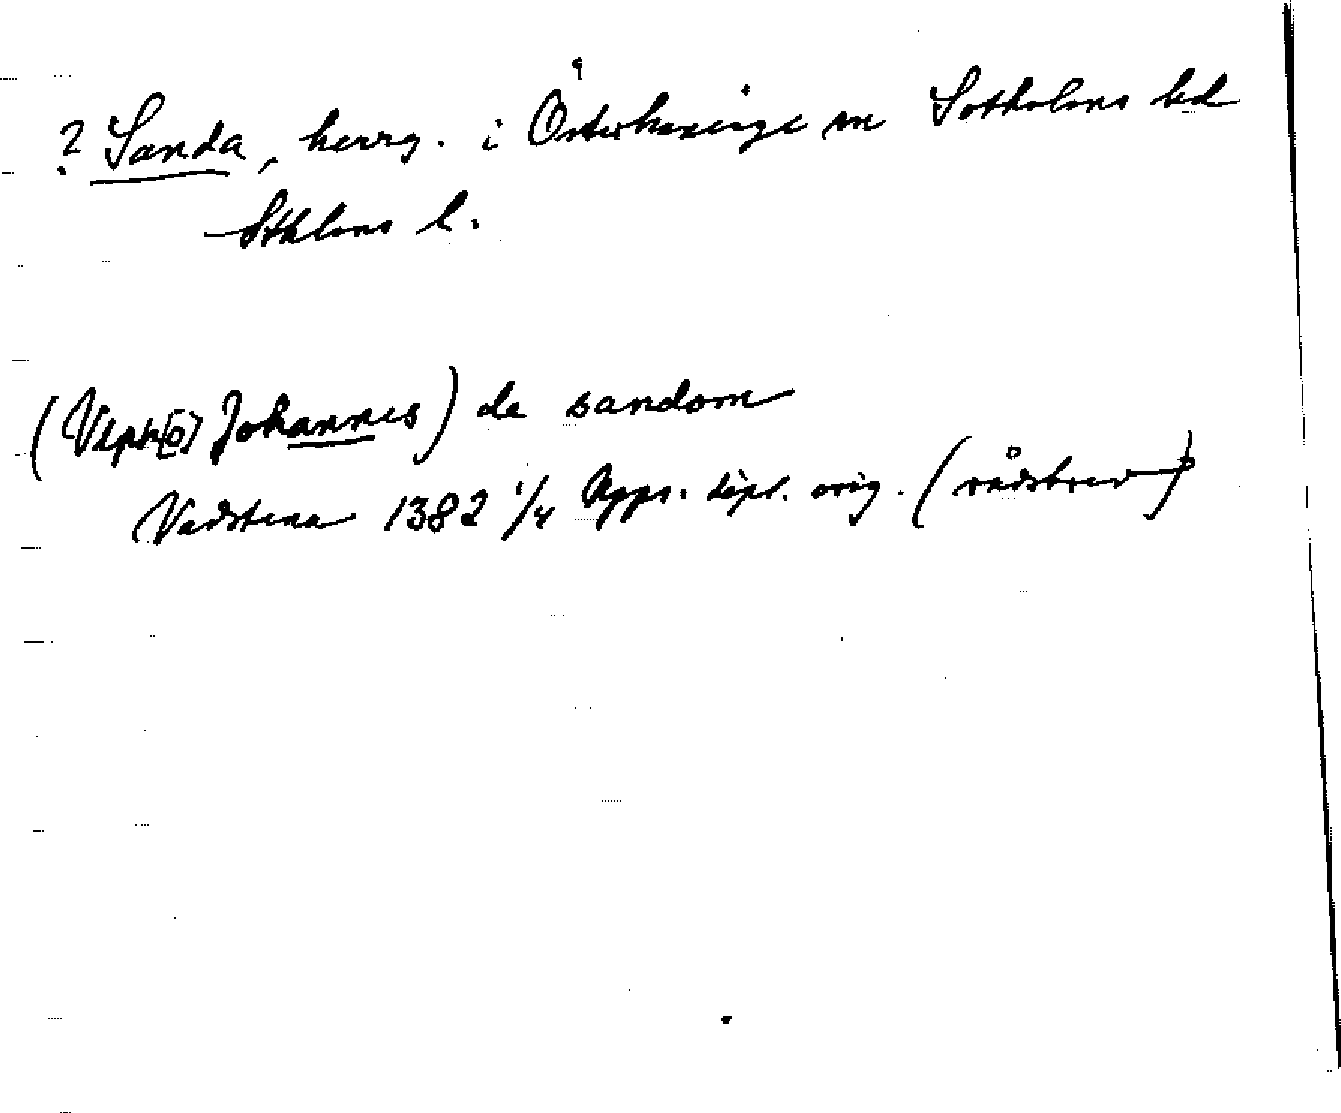 ? Sanda, herrg. i Österhaninge sn Sotholms hd
Sthlms l.
(Vlph[o] Johannes) de sandom
Vadstena 1382 1/4 Upps. dipl. orig. (rådsbrev)